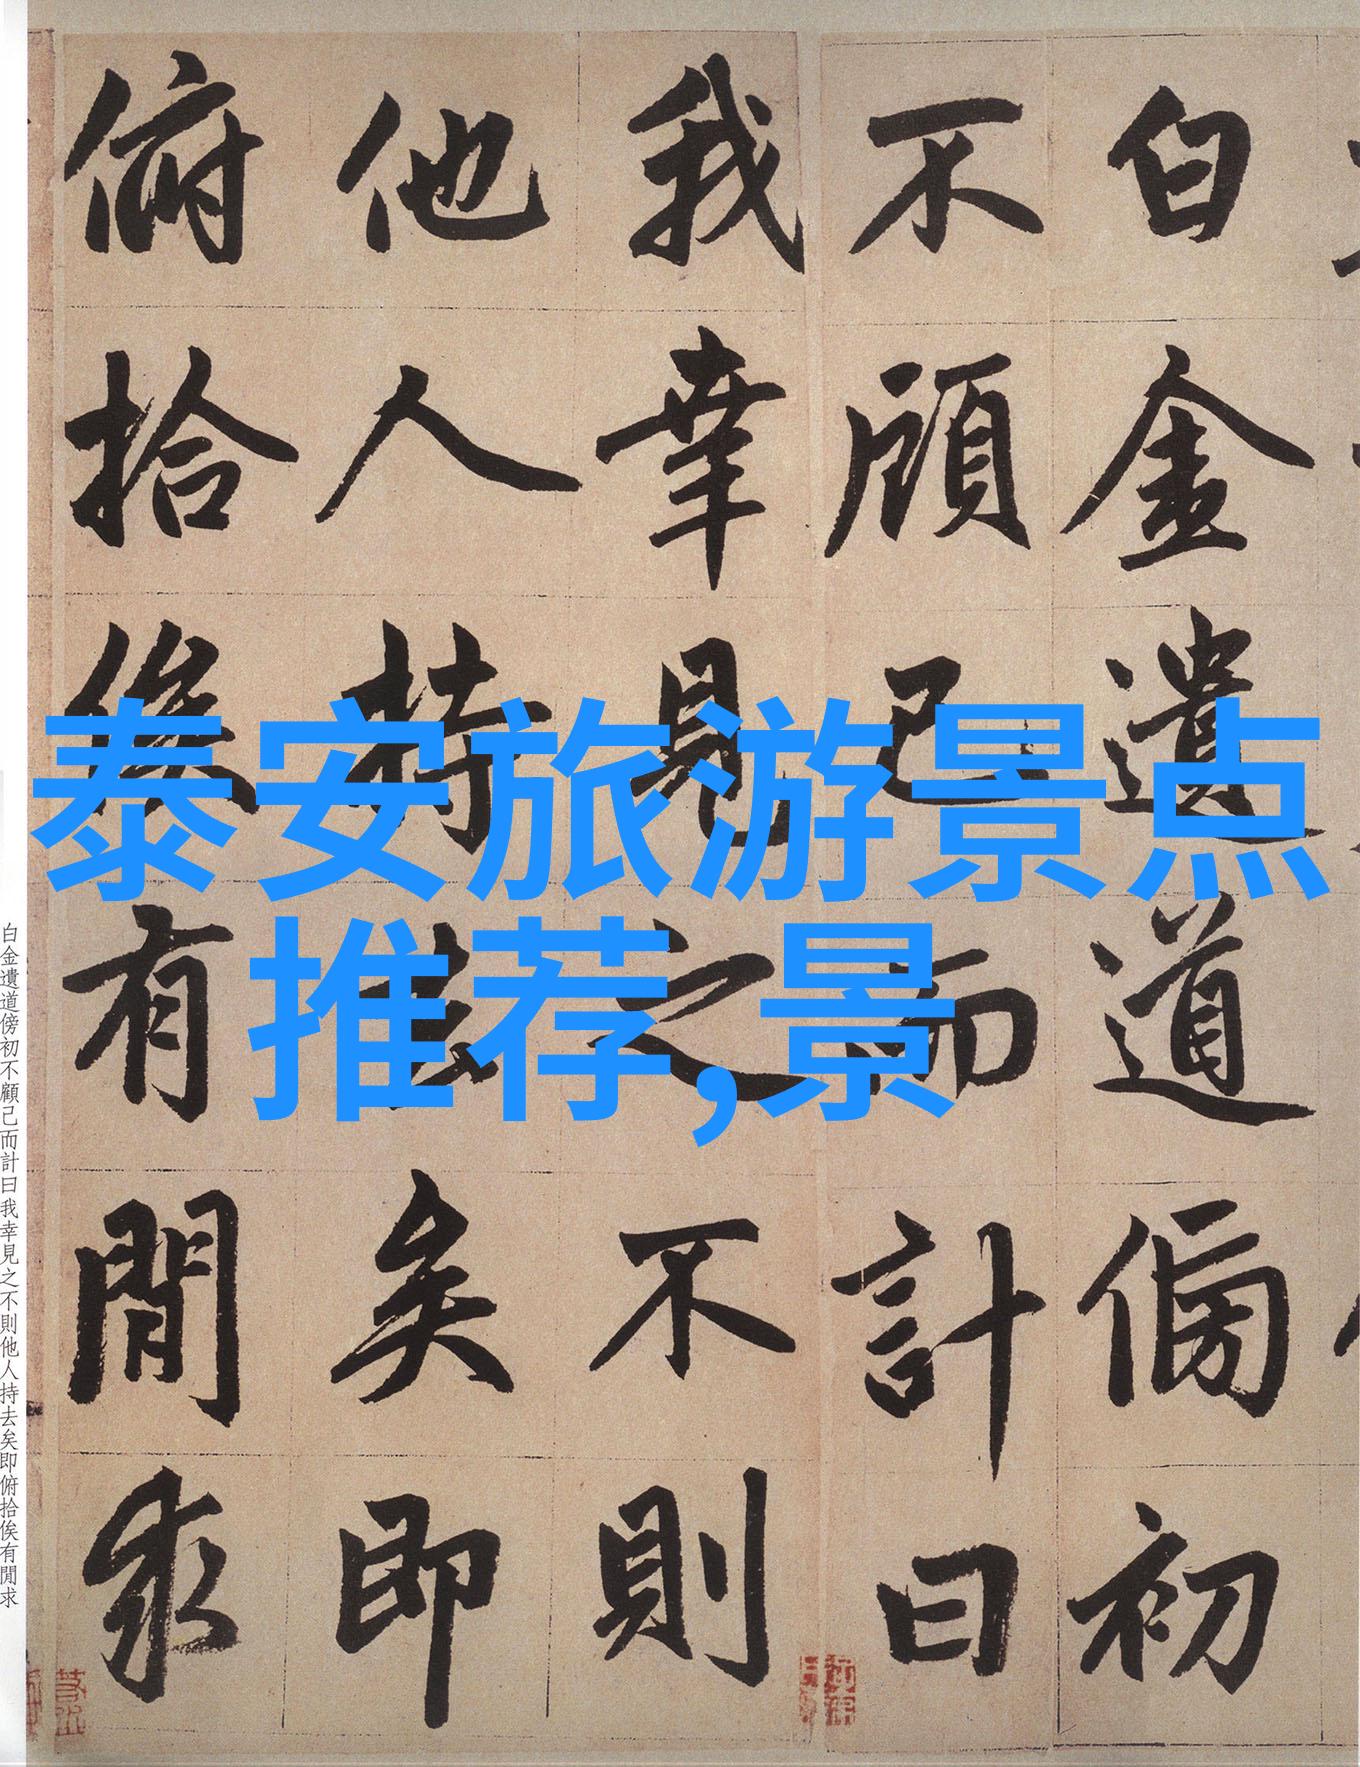 泰安旅游景点
推荐,景
白金遺道傍初
不顧己而計曰
我幸見之不則
他人持去矣即
俯拾俟有閒求
白金遺道傍初不顧己而計曰我幸見之不則他人持去矣即俯拾俟有閒求